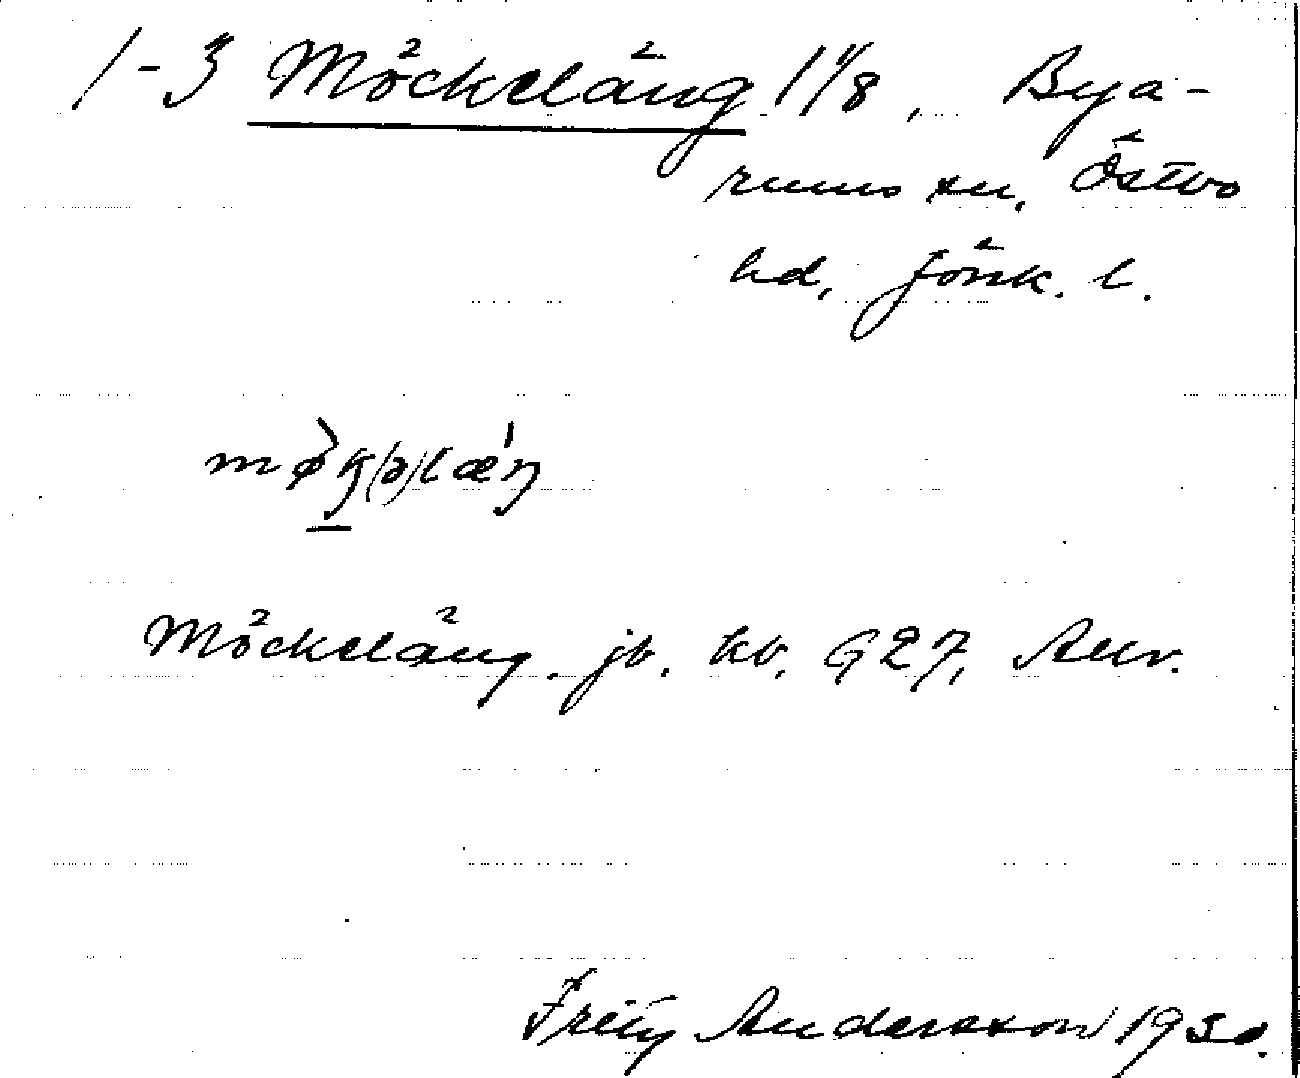 1-3 Möckeläng 1 1/8, Bya-
rums sn, Östbo
hd, Jönk. l.
mø̀k(ə)læ'ŋ
Möckeläng. jb. kb. G27, Anv.
Fritz Andersson 1930.